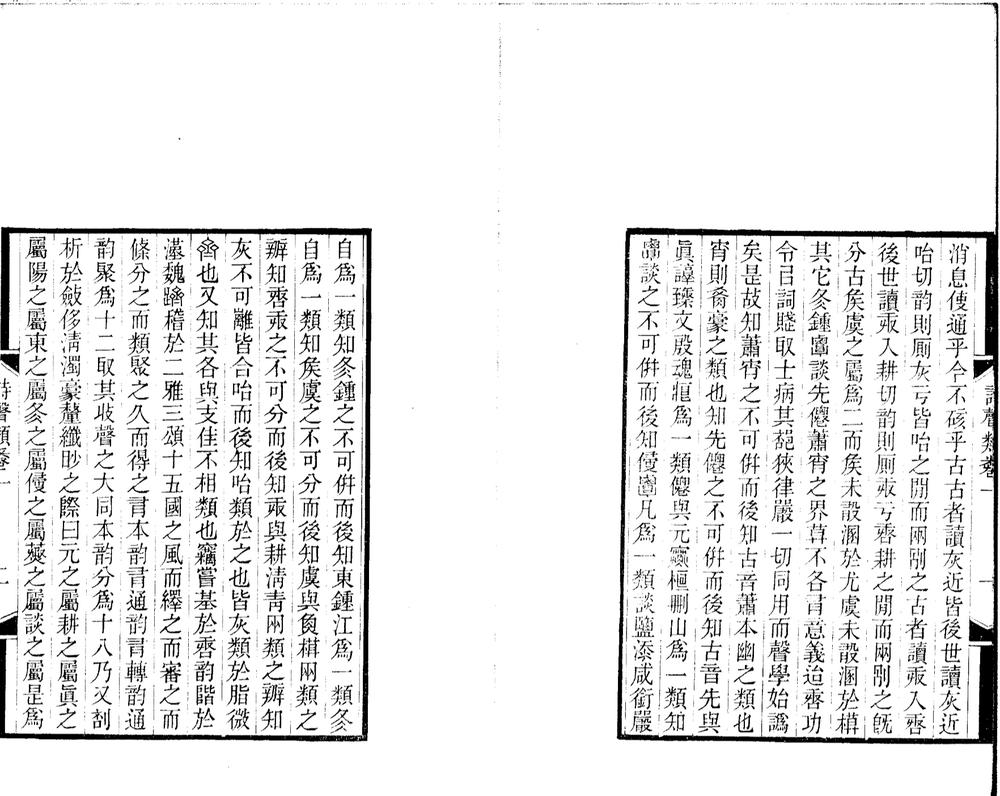 消息使通乎今不硋乎古古者讀灰近皆後世讀灰近
咍切韵則厠灰亏皆咍之閒而兩剮之古者讀庚入唐
後世讀庚入耕切韵則厠庚亏唐耕之閒而兩剮之旣
分古矦虞之屬爲二而矦未殽溷於尤虞未殽溷於模
其它冬鍾覃談先僊蕭宵之界莫不各有意義迨唐功
令以詞賦取士病其苑狹律嚴一切同用而聲學始譌
矣是故知蕭宵之不可倂而後知古音蕭本幽之類也
宵則肴豪之類也知先僊之不可倂而後知古音先與
眞諄臻文殷魂痕爲一類僊與元寒桓刪山爲一類知
覃談之不可倂而後知侵覃凡爲一類談鹽添咸銜嚴
詩聲類卷一
自爲一類知冬鍾之不可倂而後知東鍾江爲一類冬
自爲一類知矦虞之不可分而後知虞與魚模兩類之
辨知唐庚之不可分而後知庚與耕淸靑兩類之辨知
灰不可離皆合咍而後知咍類於之也皆灰類於脂微
齊也又知其各與支佳不相類也竊嘗基於唐韵階於
漢魏躋稽於二雅三頌十五國之風而繹之而審之而
條分之而類聚之久而得之有本韵有通韵有轉韵通
韵聚爲十二取其收聲之大同本韵分爲十八乃又剖
析於斂侈淸濁豪釐纖眇之際曰元之屬耕之屬眞之
屬陽之屬東之屬冬之屬侵之屬蒸之屬談之屬是爲
詩聲類卷一
二